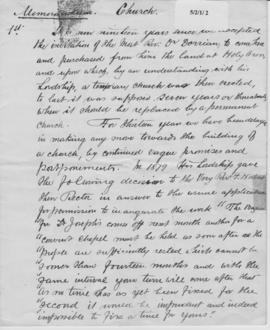 Memorandum. Church. 5/2/1/2
1st. It is now nineteen years since we accepted
the invitation of the Most Rev. Dr Dorrian to come here
and purchased from him the land at Holy
and upon which, by an understanding with his
Lordship, a temporary church was then erected,
to last it was supposed seven years or thereabouts
when it should be replaced by a permanent
church. For thirteen years we have been delayed
in making any move towards the building of
a church, by continued vague promises and
postponements. In 1879 His Lordship gave
the following decision to the Very Rev. F.
then Rector in answer to the usual application
for permission to inaugurate the work "The Bazaar
for St Joseph's comes off next month another for a
"convent chapel must be held as soon after as the
"people are sufficiently rested which cannot be
"sooner than fourteen months and with the
"same interval your turn will come after that
"as no time has as yet been fixed for the
"second it would be imprudent and indeed
"impossible to fix a time for yours."